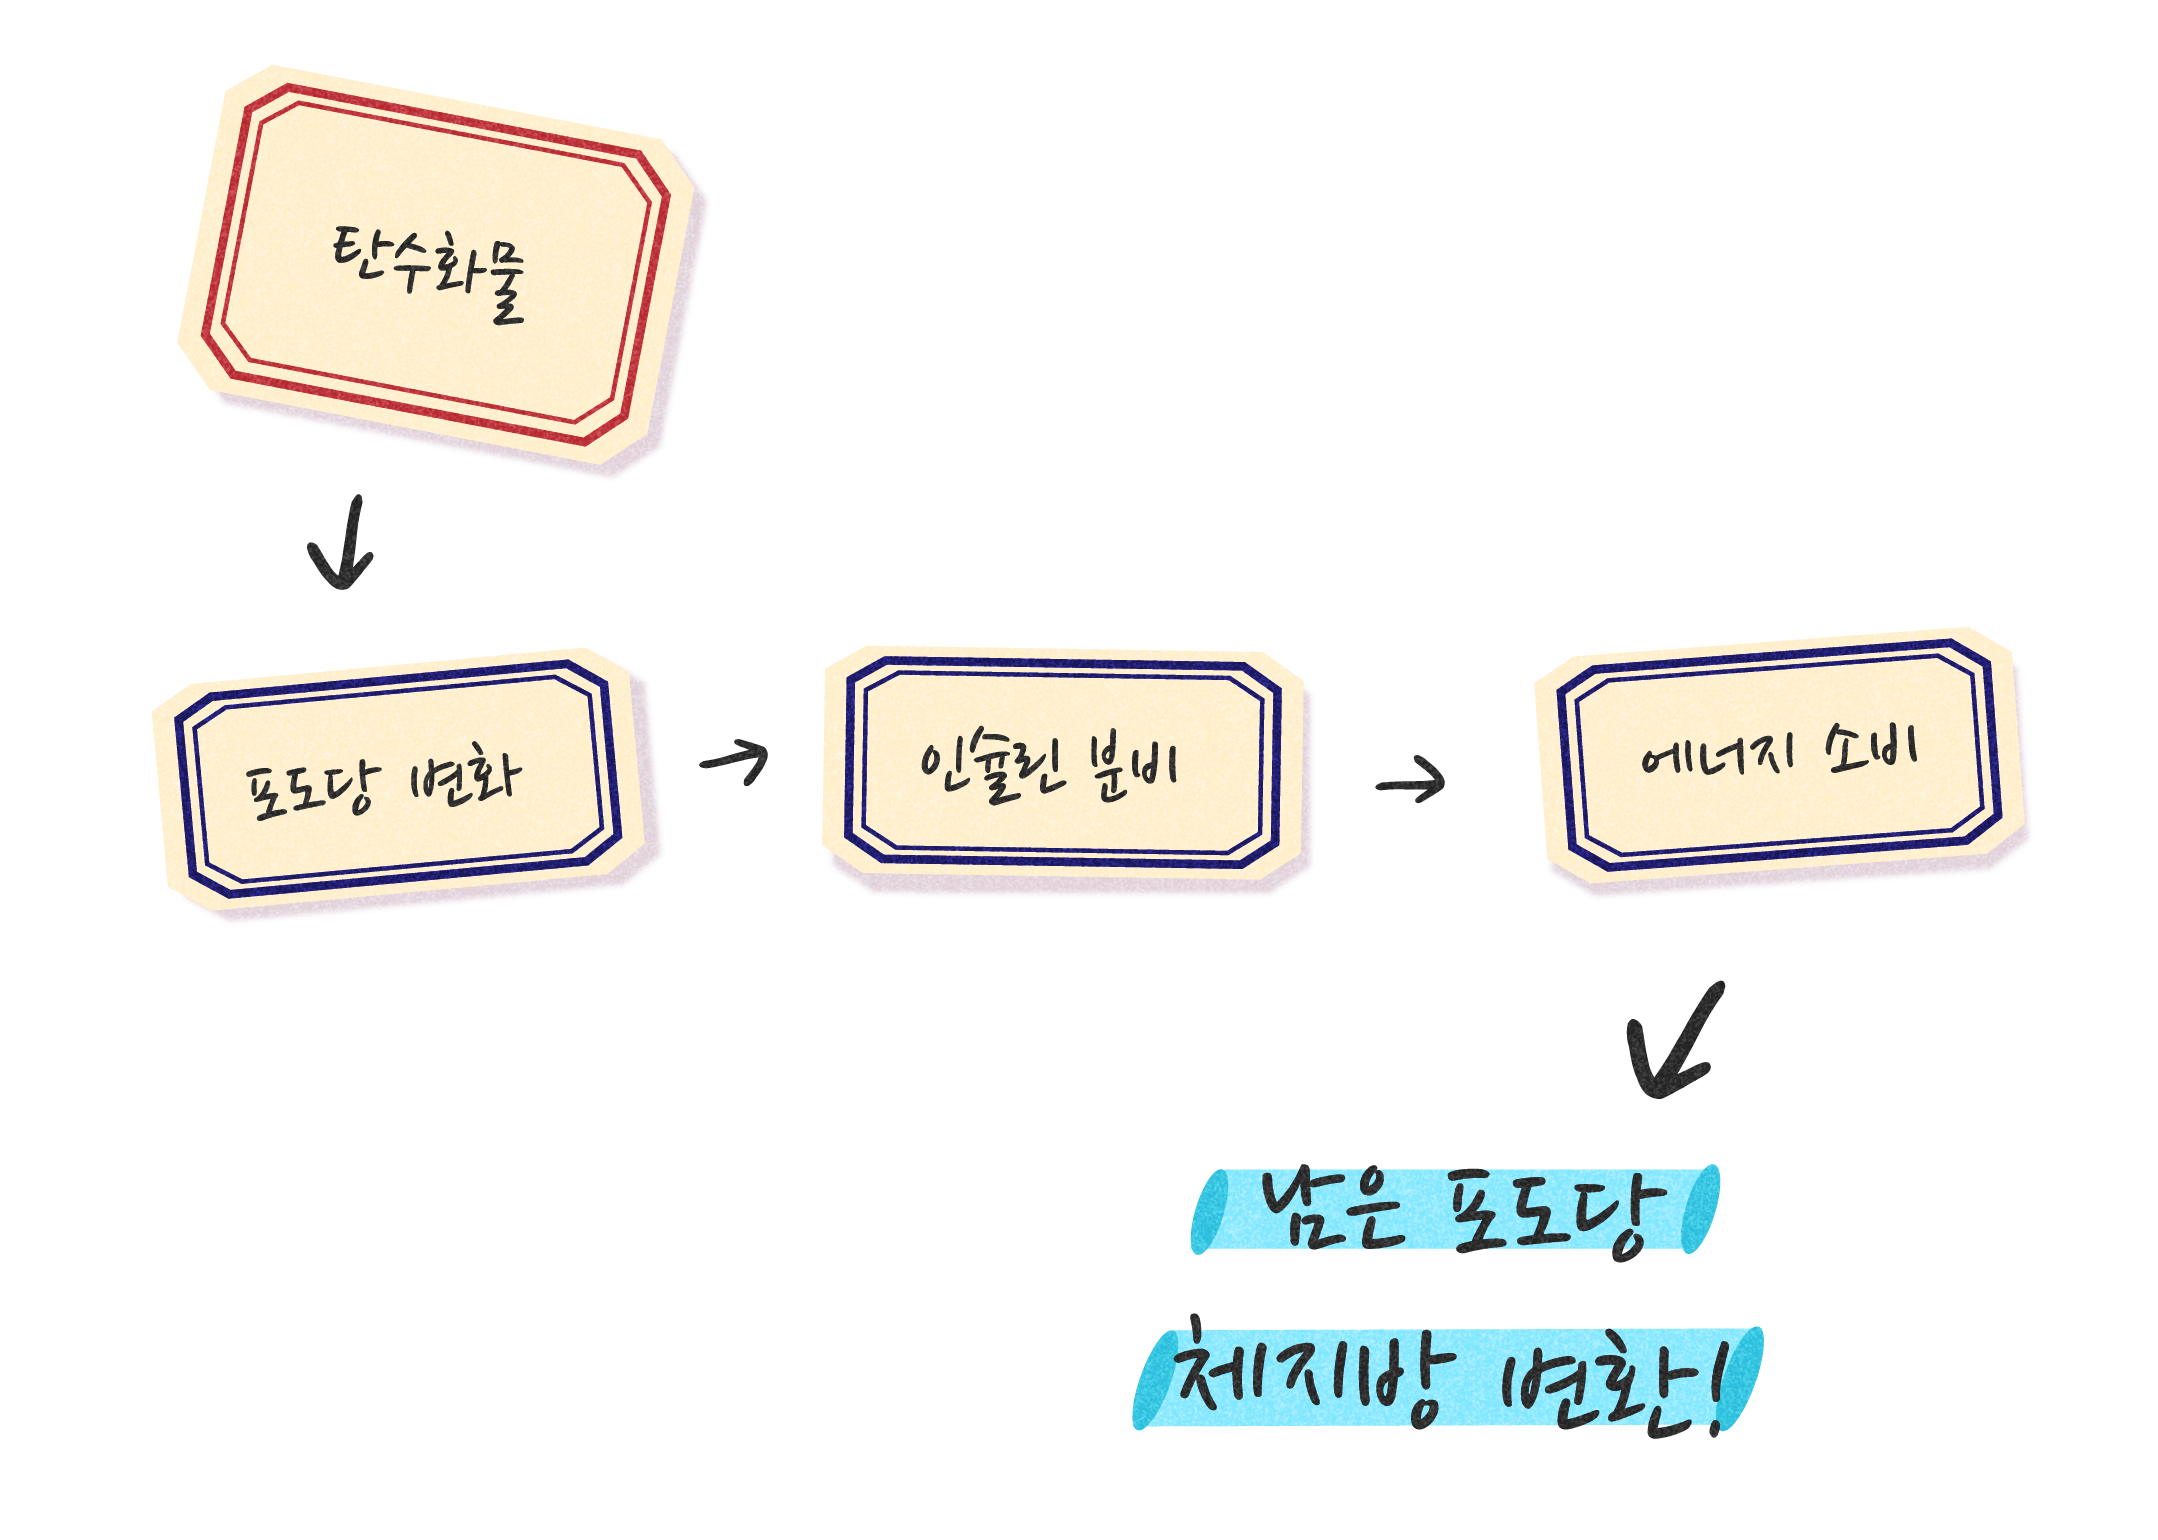 탄수화물
포도당 변화
인슐린 분비
에너지 소비
남은 포도당
체지방 변환!